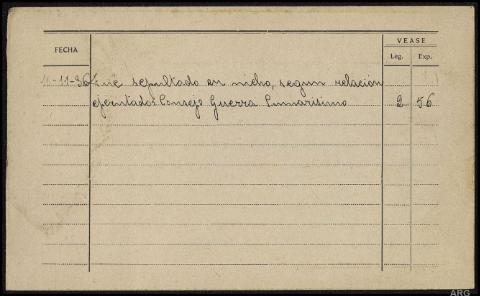 FECHA
VEASE
Leg. Exp.
11-11-36 Fué sepultado en nicho, segun relación
ejecutados Consejo Guerra Sumarisimo 2 56
ARG